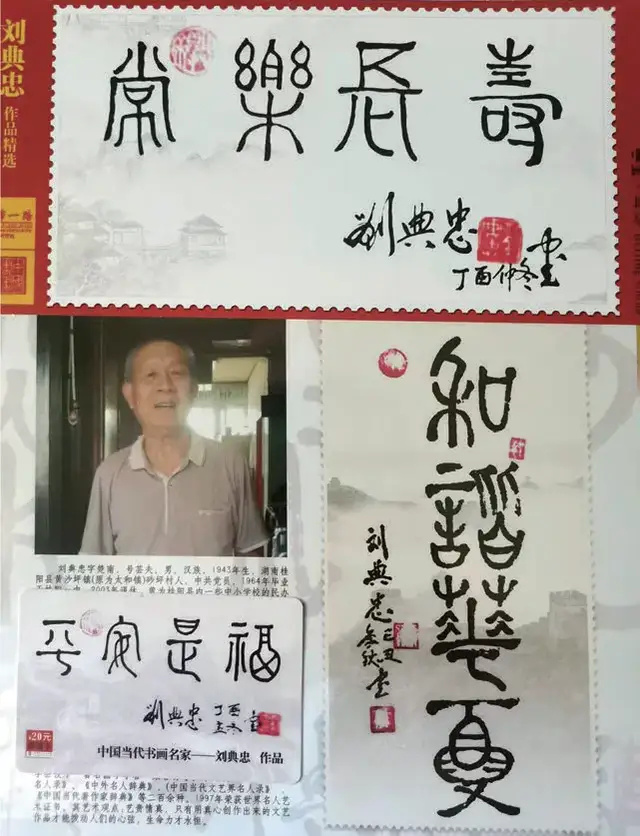 刘典忠 作品精选
常樂长壽
刘典忠
丁酉仲冬
和諧華夏
刘典忠
己丑
刘典忠字楚南，号芸夫，男，汉族，1943年生，湖南桂
阳县黄沙坪镇(原为太和镇)砂坪村人，中共党员，1964年毕业
平安是福
刘典忠
丁酉
¥20元
中国当代书画名家——刘典忠 作品
名人录》、《中外名人辞典》、《中国当代文艺界名人录》
《中国当代著作家辞典》等二百余种。1997年荣获世界名人艺
术证书。其艺术观点：艺贵情真，只有用真心创作出来的文艺
作品才能拨动人们的心弦，生命力才永恒。